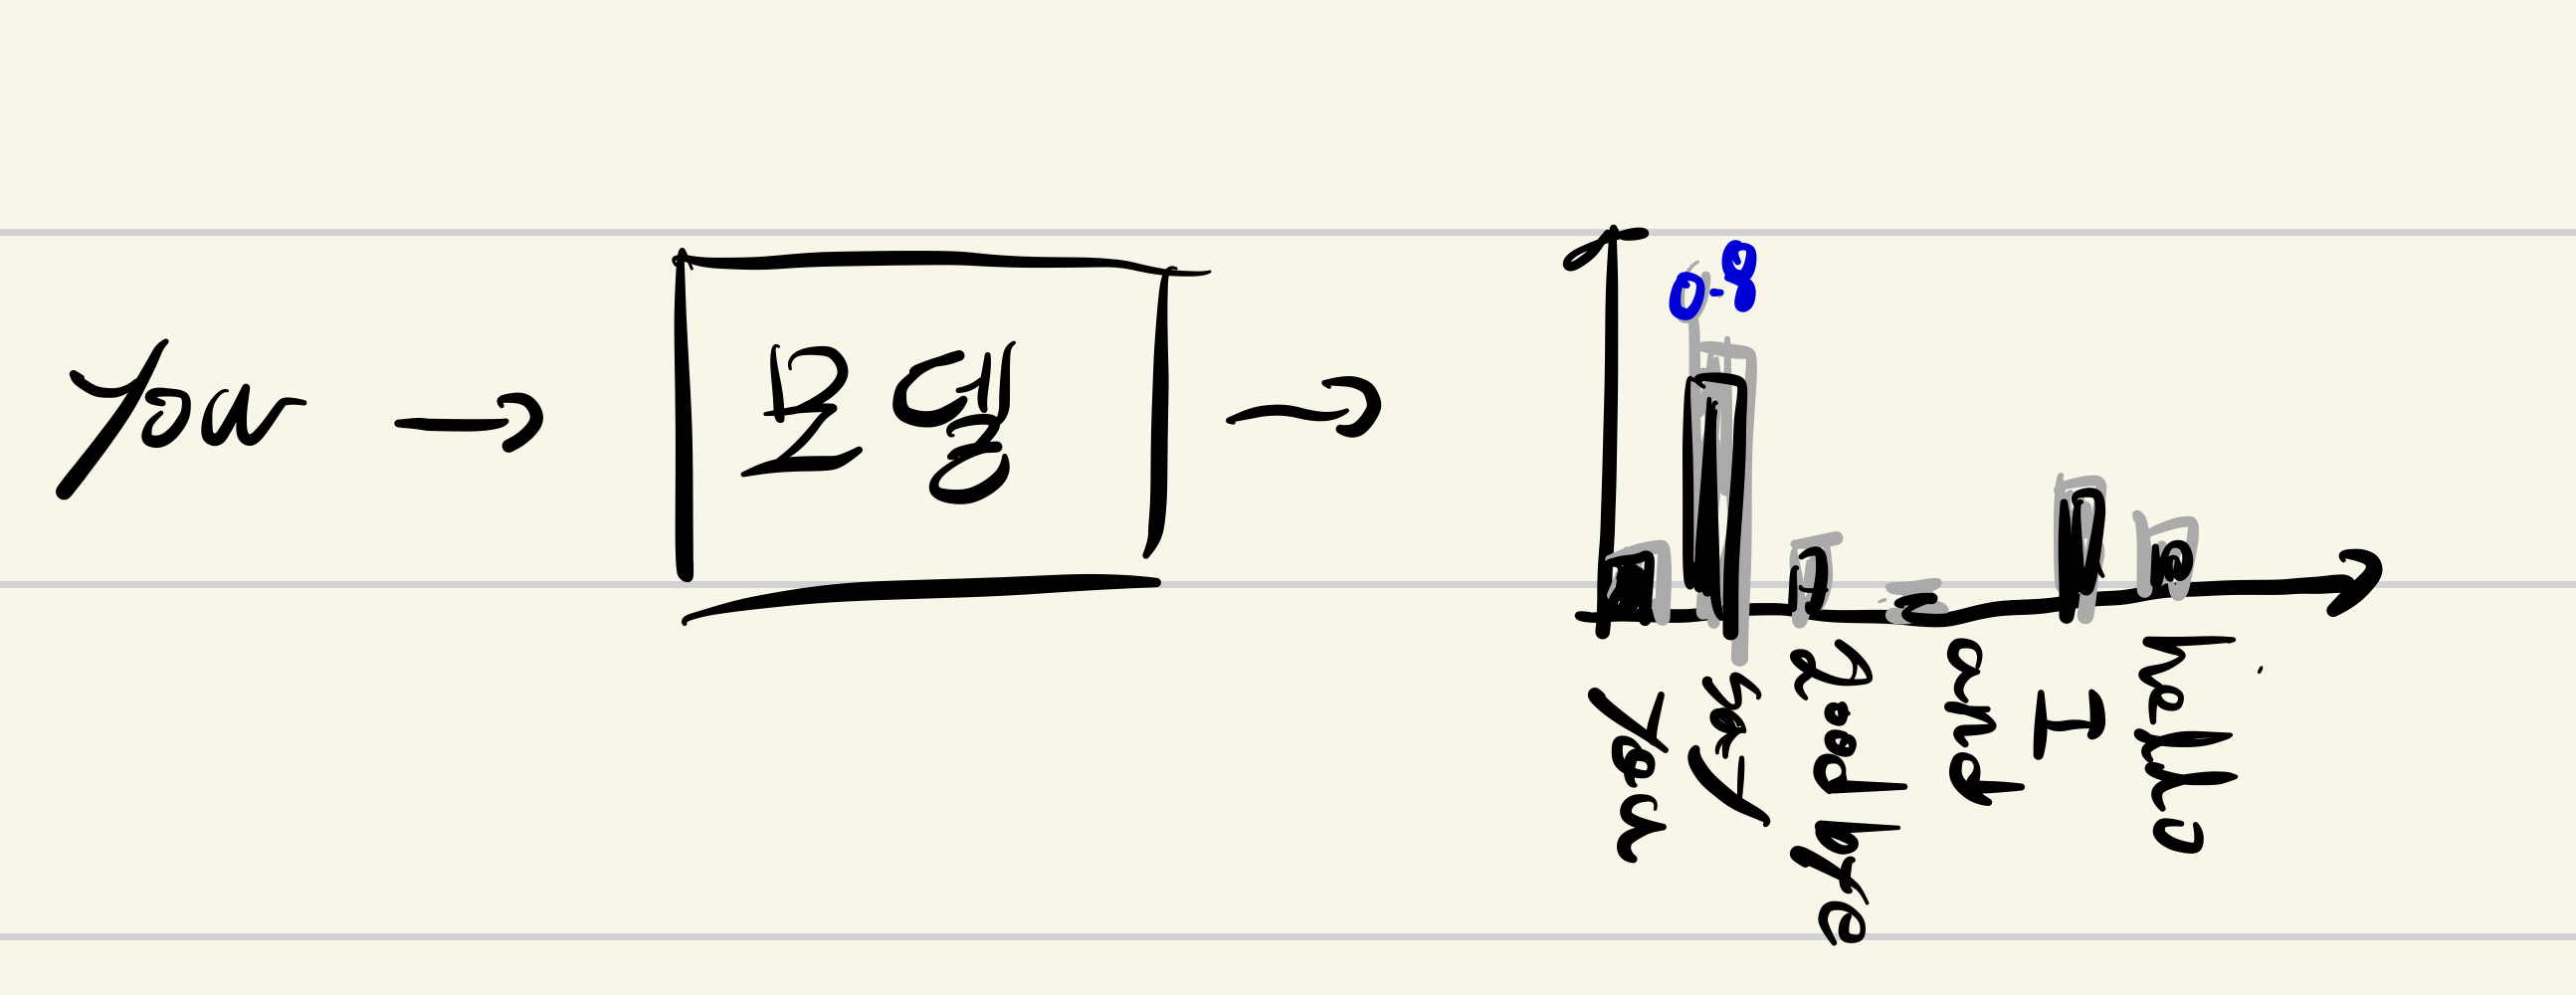 you → 모델 →
0.8
you
say
goodbye
and
I
hello